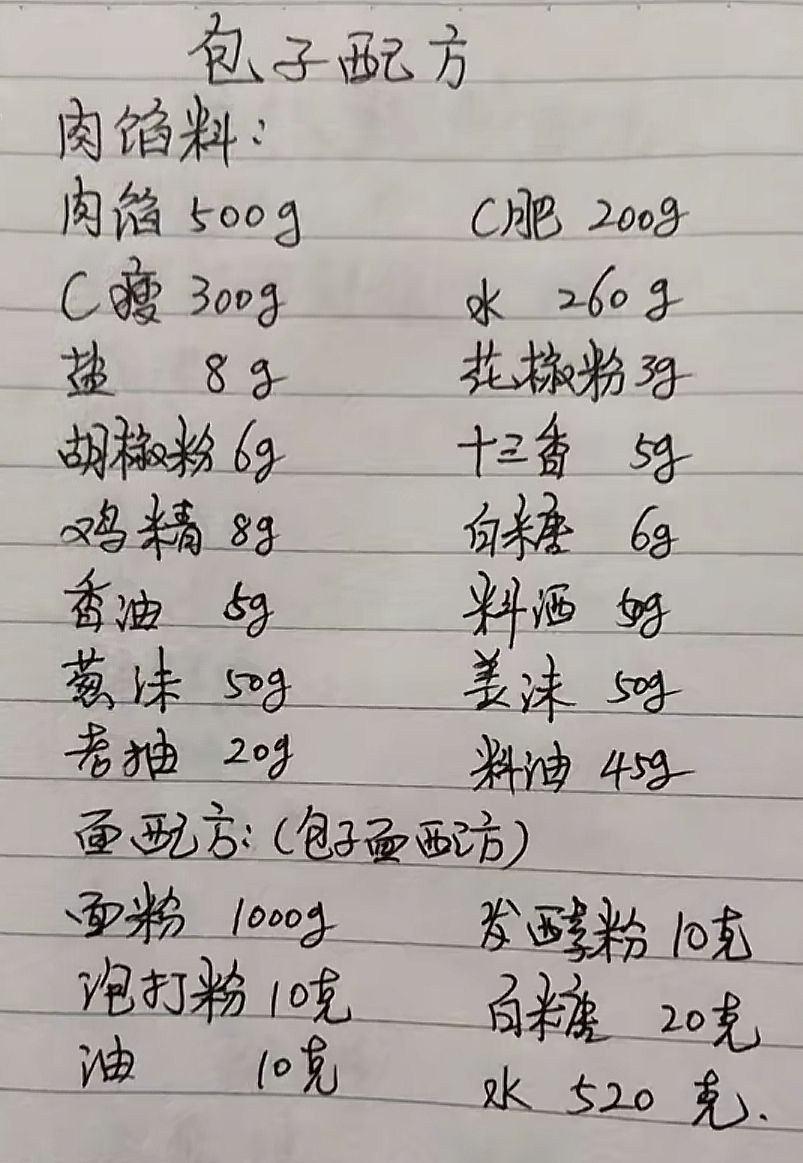 包子配方
肉馅料:
肉馅 500g C肥 200g
C瘦 300g 水 260g
盐 8g 花椒粉 3g
胡椒粉 6g 十三香 5g
鸡精 8g 白糖 6g
香油 5g 料酒 50g
葱沫 50g 姜沫 50g
老抽 20g 料油 45g
面配方:(包子面配方)
面粉 1000g 发酵粉 10克
泡打粉 10克 白糖 20克
油 10克 水 520克.